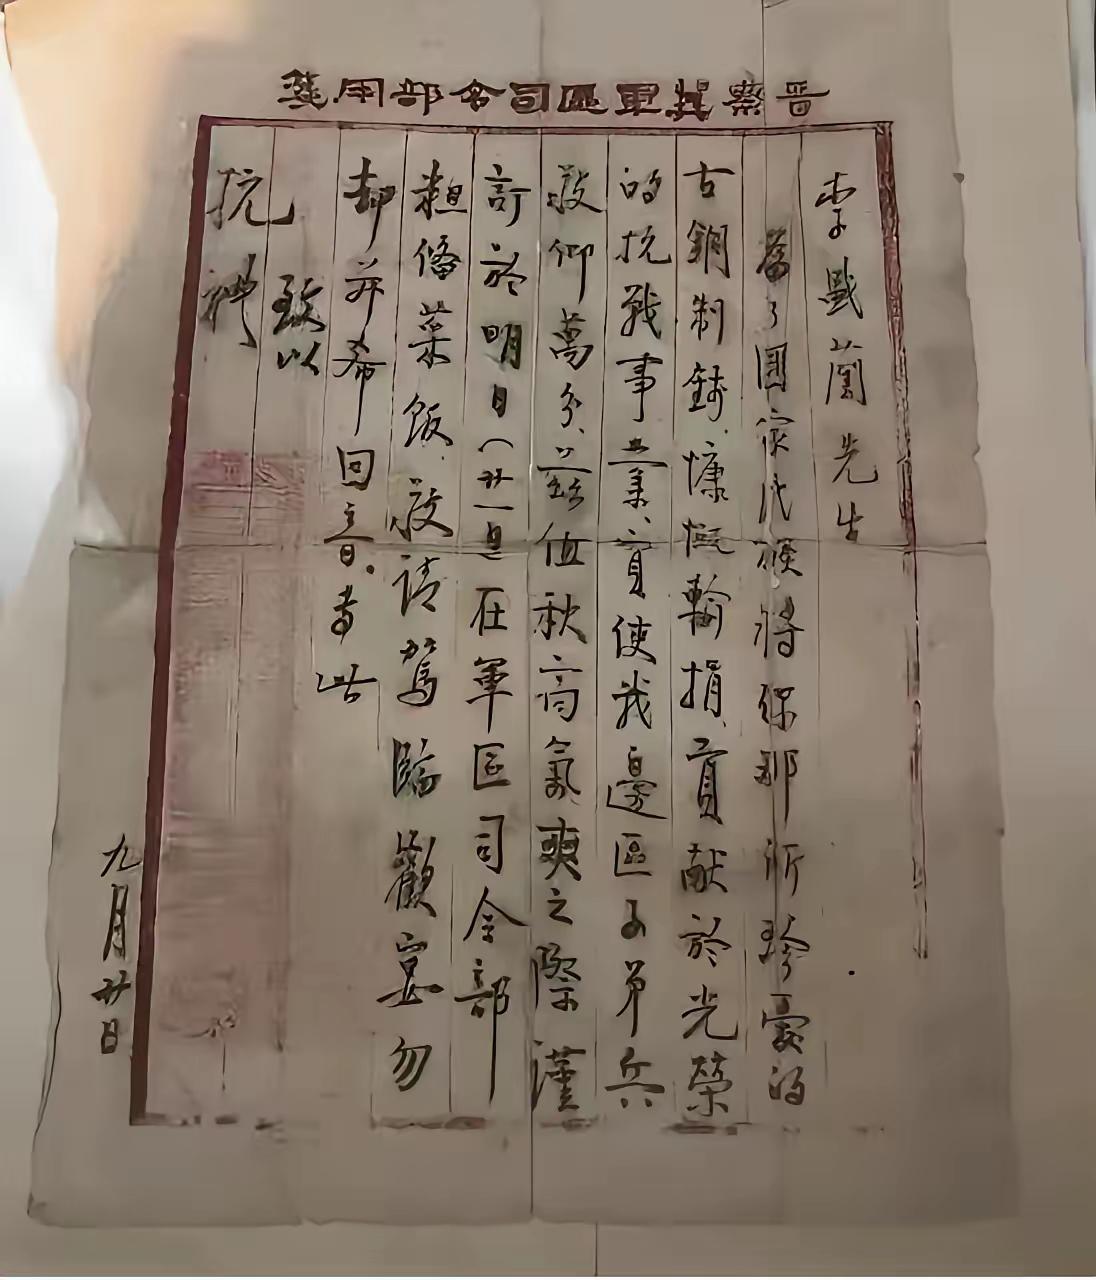 晋察冀軍區司令部用箋
李戰蘭先生
為了國家民族將你那所珍愛的
古銅制錢慷慨輸捐、貢献於光榮
的抗戰事業、實使我邊區子弟兵
敬仰萬分、兹值秋高氣爽之際謹
訂於明日（廿一日）在軍區司令部
粗俻菜飯、敬請駕臨歡宴勿
却并希回音。專此
致以
抗禮
九月廿日